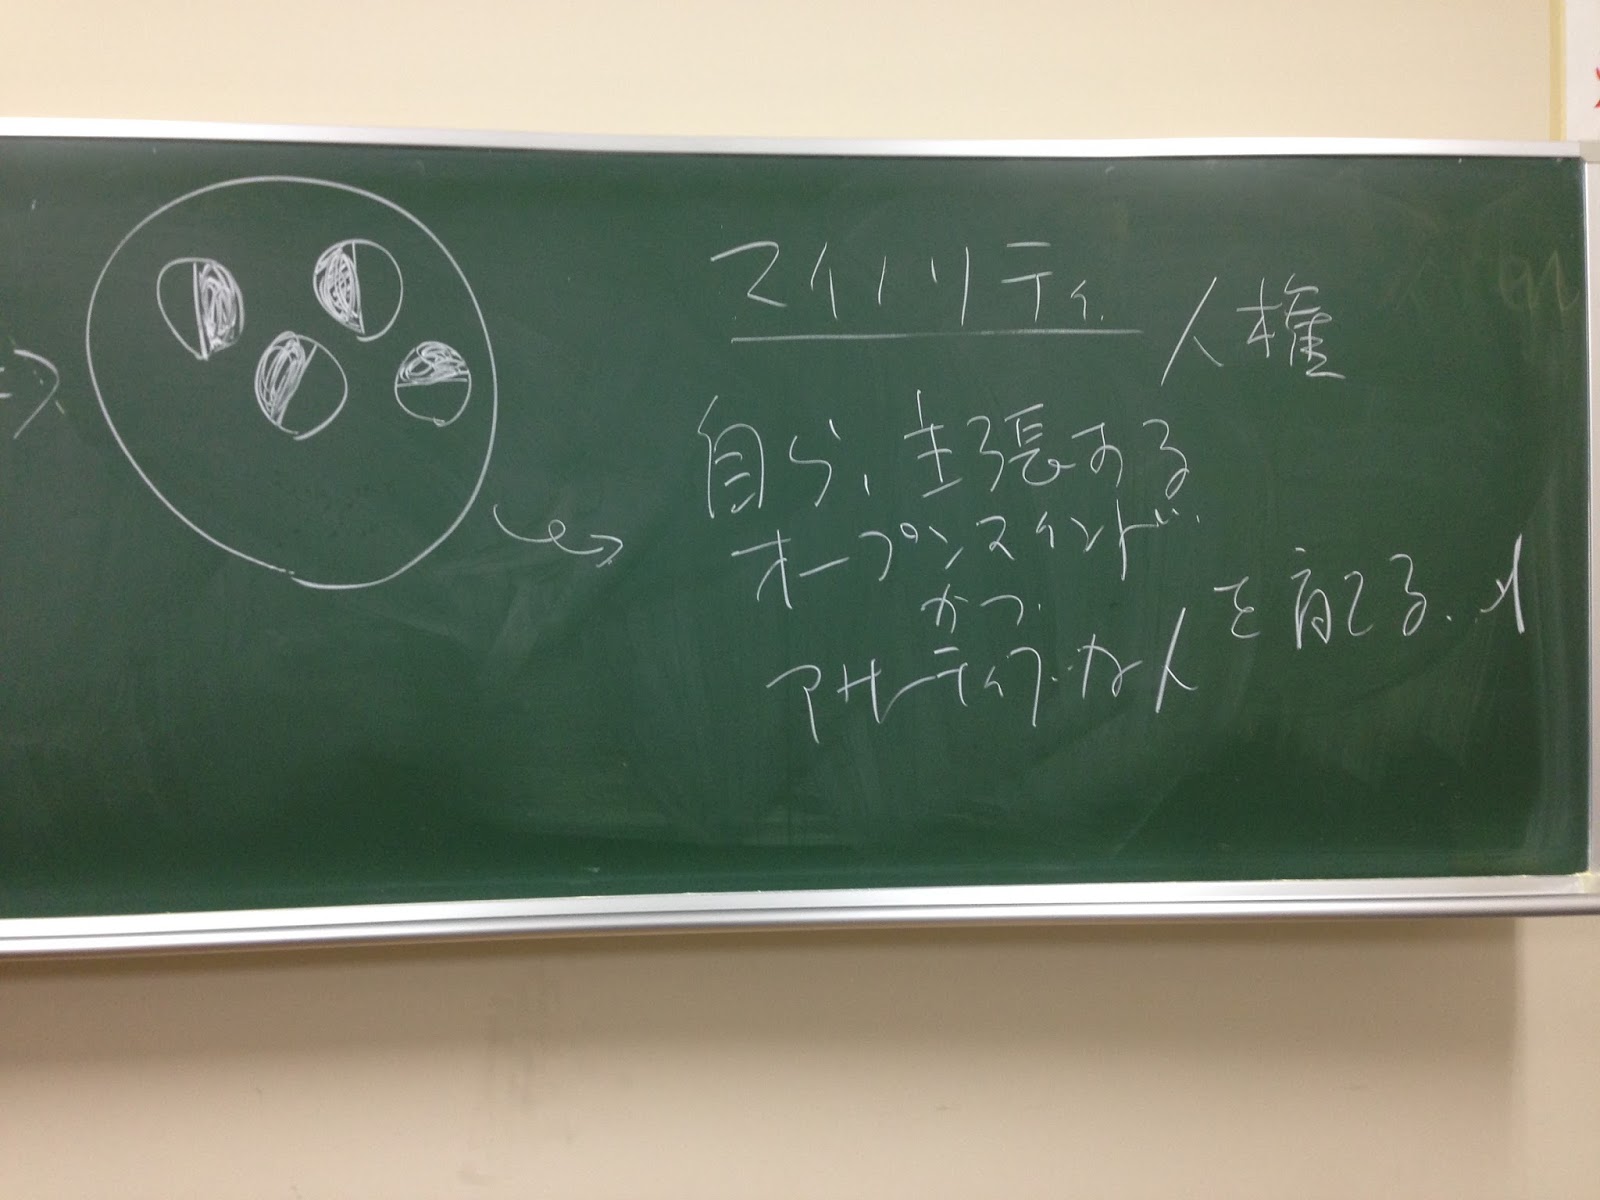 マイノリティ
人権
自ら、主張する
オープンマインド
かつ
アサーティブな人
を育てる.